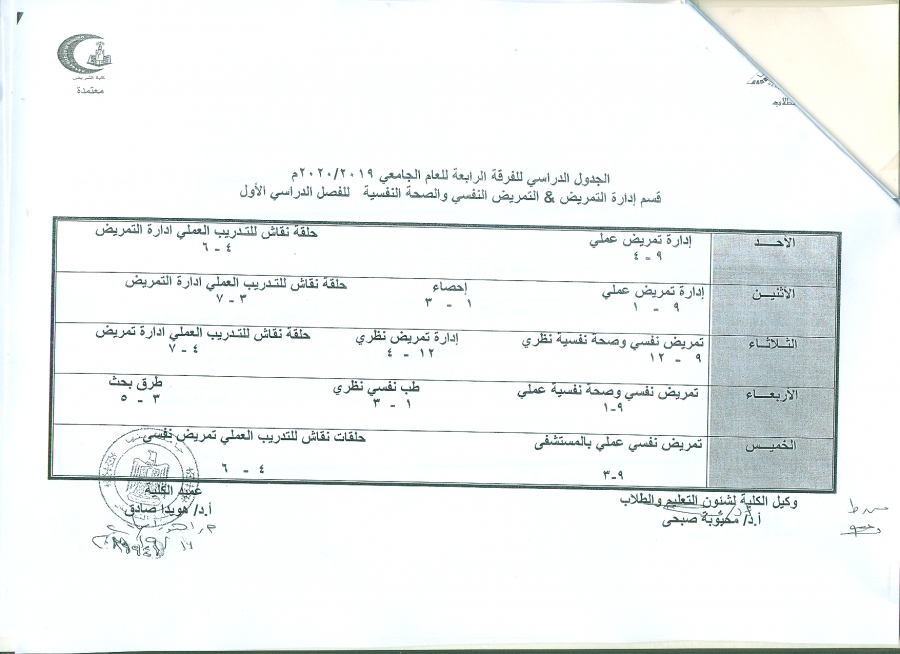 كلية التمريض
معتمدة
الجدول الدراسي للفرقة الرابعة للعام الجامعي ٢٠٢٠/٢٠١٩م
قسم إدارة التمريض & التمريض النفسي والصحة النفسية للفصل الدراسي الأول
الأحد إدارة تمريض عملي حلقة نقاش للتدريب العملي ادارة التمريض
٩ - ٤ ٤ - ٦
الأثنين إدارة تمريض عملي إحصاء حلقة نقاش للتدريب العملي ادارة التمريض
٩ - ١ ١ - ٣ ٣ - ٧
الثلاثاء تمريض نفسي وصحة نفسية نظري إدارة تمريض نظري حلقة نقاش للتدريب العملي ادارة تمريض
٩ - ١٢ ١٢ - ٤ ٤ - ٧
الأربعاء تمريض نفسي وصحة نفسية عملي طب نفسي نظري طرق بحث
٩-١ ١ - ٣ ٣ - ٥
الخميس تمريض نفسي عملي بالمستشفى حلقات نقاش للتدريب العملي تمريض نفسي
٩-٣ ٤ - ٦
وكيل الكلية لشئون التعليم والطلاب عميد الكلية
أ.د/ محبوبة صبحى أ.د/ هويدا صادق